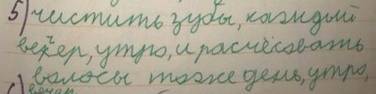 5) чистить зубы, каждый
вечер, утро, и расчёсовать
волосы тоже день, утро,
вечер